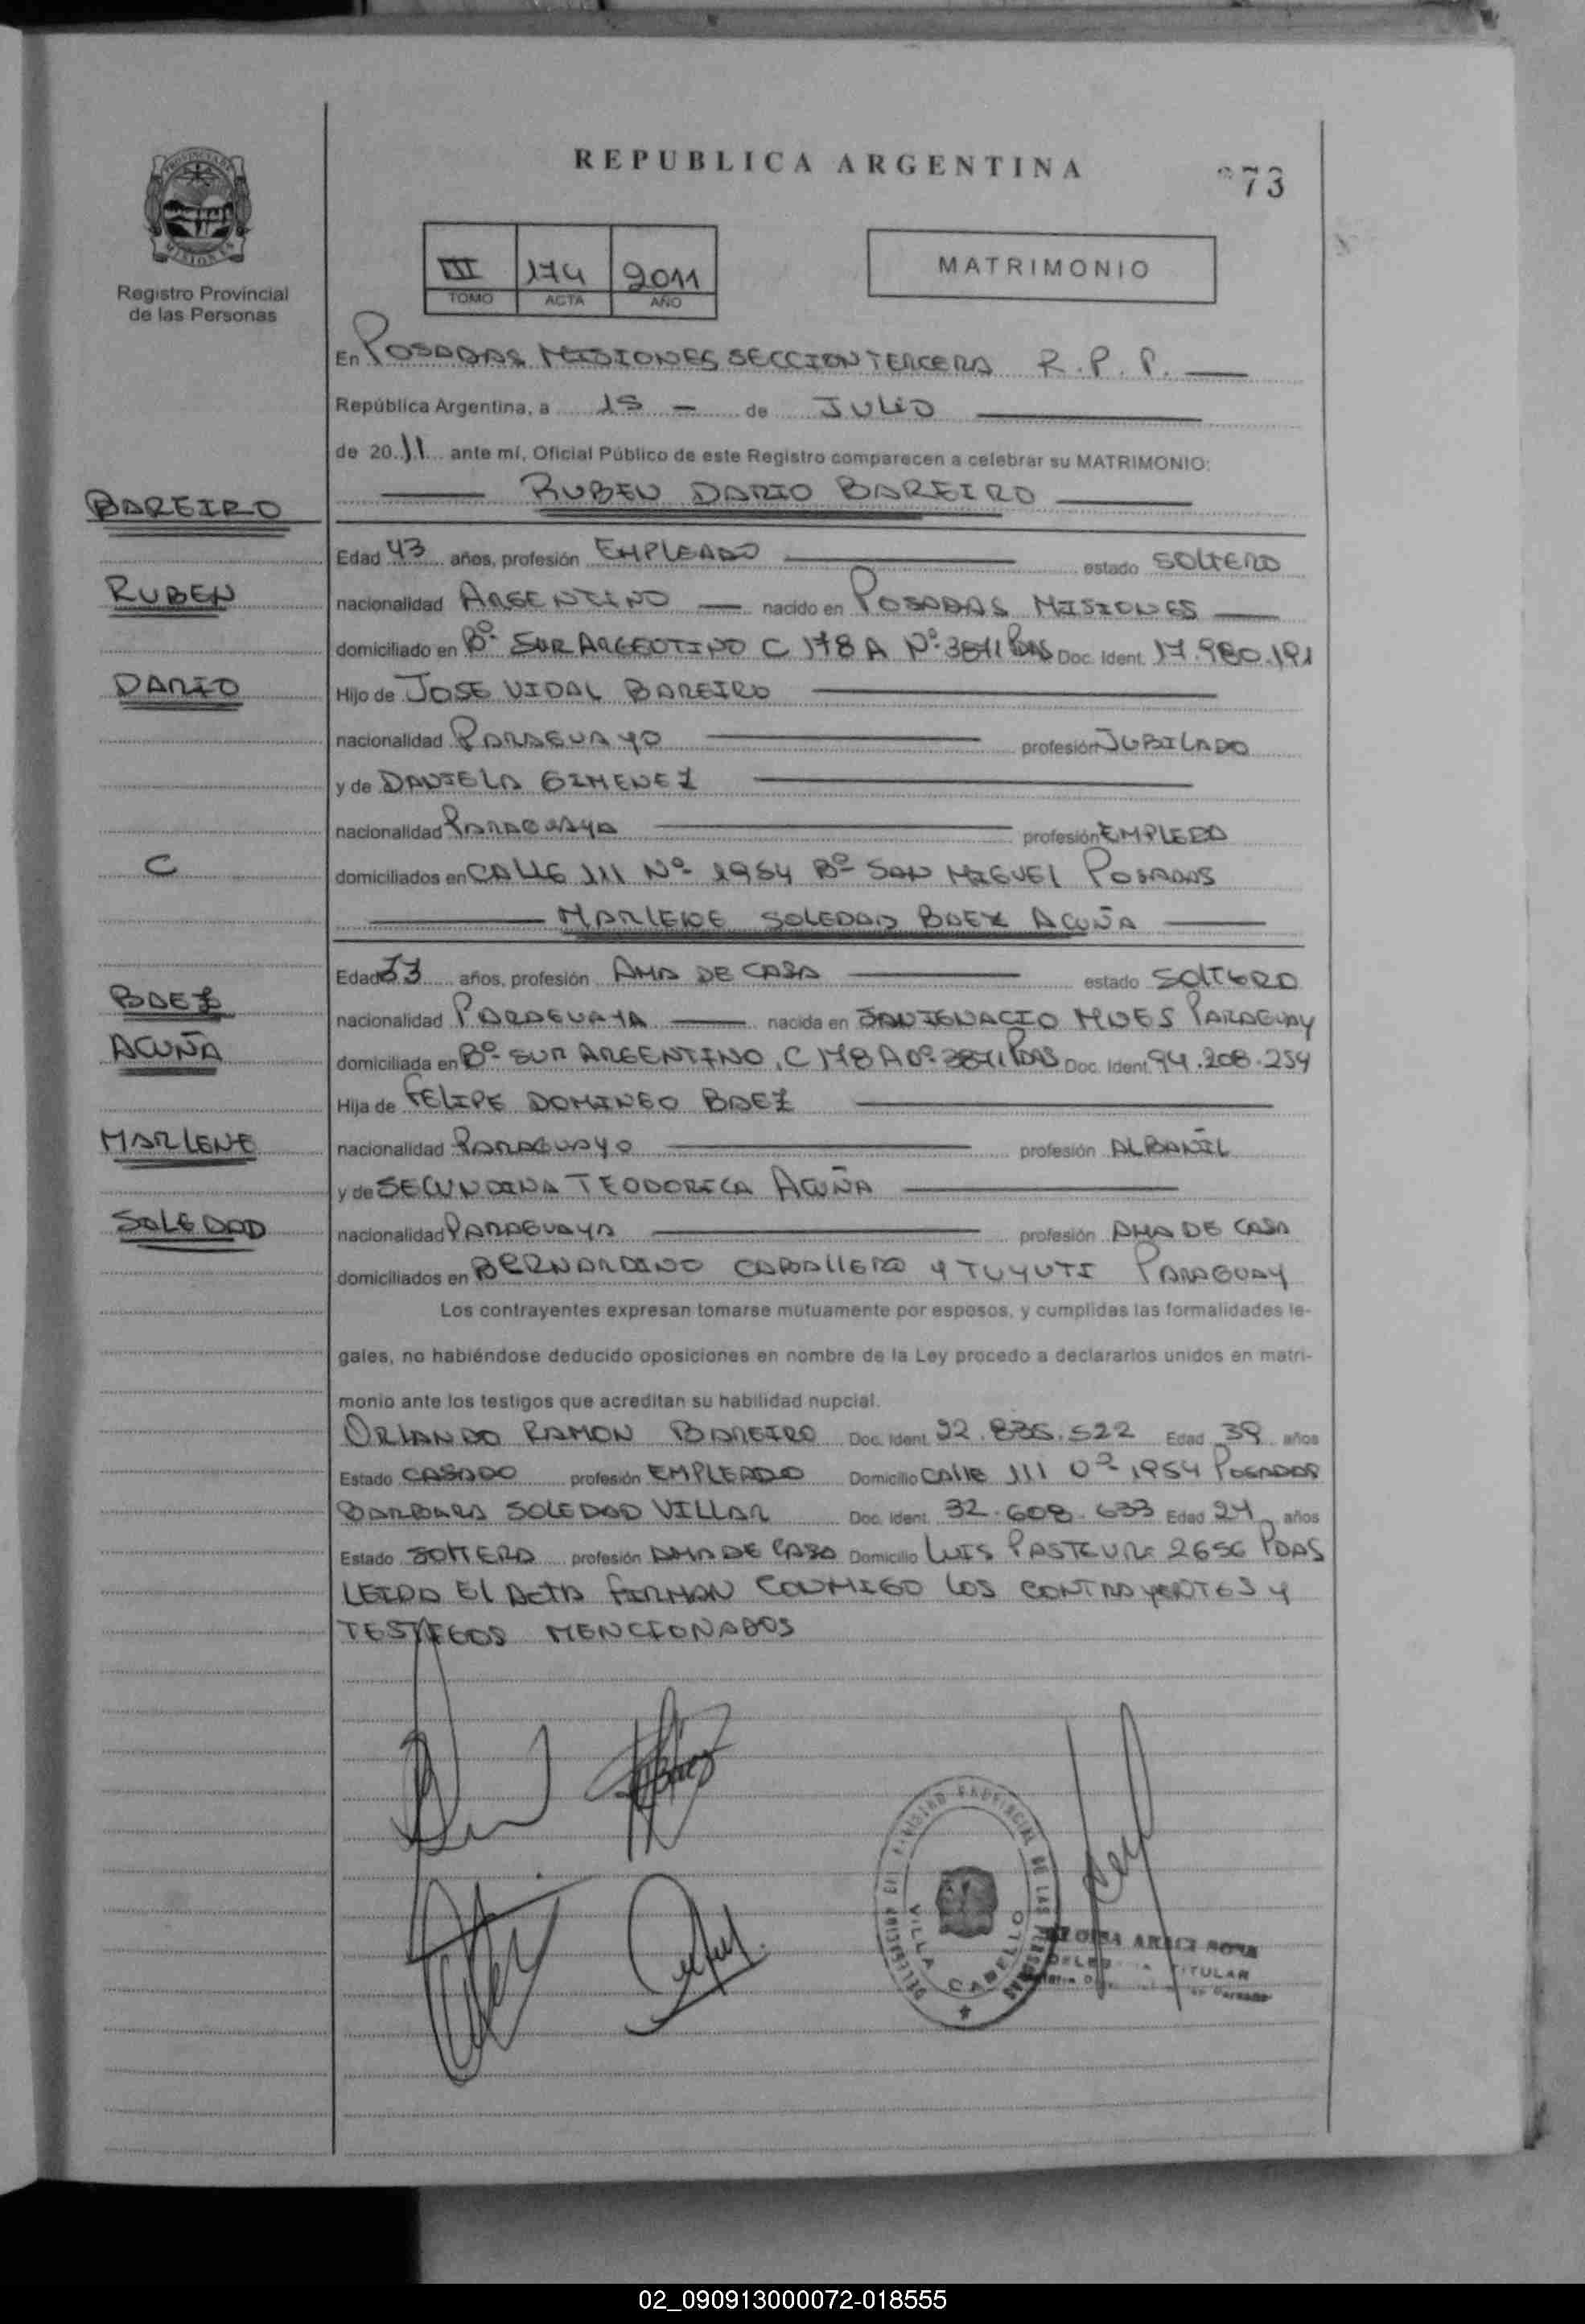 REPUBLICA ARGENTINA
73
PROVINCIA DE
MISIONES
Registro Provincial
de las Personas
III 174 2011
TOMO ACTA AÑO
MATRIMONIO
En POSADAS MISIONES SECCION TERCERA R.P.P.
República Argentina, a 15 - de JULIO
de 2011 ante mí, Oficial Público de este Registro comparecen a celebrar su MATRIMONIO:
RUBEN DARIO BAREIRO
BAREIRO
Edad 43 años, profesión EMPLEADO estado SOLTERO
RUBEN
nacionalidad ARGENTINO nacido en POSADAS MISIONES
domiciliado en Bº SUR ARGENTINO C 178 A Nº 3871 PDAS Doc. Ident. 17.980.191
DARIO
Hijo de JOSE VIDAL BAREIRO
nacionalidad PARAGUAYO profesión JUBILADO
y de DANIELA GIMENEZ
nacionalidad PARAGUAYA profesión EMPLEDA
C
domiciliados en CALLE 111 Nº 1954 Bº SAN MIGUEL POSADAS
MARLENE SOLEDAD BAEZ ACUÑA
Edad 33 años, profesión AMA DE CASA estado SOLTERO
BAEZ
nacionalidad PARAGUAYA nacida en SAN IGNACIO MNES PARAGUAY
ACUÑA
domiciliada en Bº SUR ARGENTINO, C 178 A Nº 3871 PDAS Doc. Ident. 94.208.254
Hija de FELIPE DOMINGO BAEZ
MARLENE
nacionalidad PARAGUAYO profesión ALBAÑIL
y de SECUNDINA TEODORICA ACUÑA
SOLEDAD
nacionalidad PARAGUAYA profesión AMA DE CASA
domiciliados en BERNARDINO CABALLERO Y TUYUTI PARAGUAY
Los contrayentes expresan tomarse mutuamente por esposos, y cumplidas las formalidades le-
gales, no habiéndose deducido oposiciones en nombre de la Ley procedo a declararlos unidos en matri-
monio ante los testigos que acreditan su habilidad nupcial.
ORLANDO RAMON BAREIRO Doc. Ident. 22.835.522 Edad 39 años
Estado CASADO profesión EMPLEADO Domicilio CALLE 111 Nº 1954 POSADAS
BARBARA SOLEDAD VILLAR Doc. Ident. 32.608.633 Edad 24 años
Estado SOLTERA profesión AMA DE CASA Domicilio LUIS PASTEUR 2656 PDAS
LEIDA EL ACTA FIRMAN CONMIGO LOS CONTRAYENTES Y
TESTIGOS MENCIONADOS
REGISTRO PROVINCIAL DE LAS PERSONAS
VILLA CABELLO
TITULAR
02_090913000072-018555